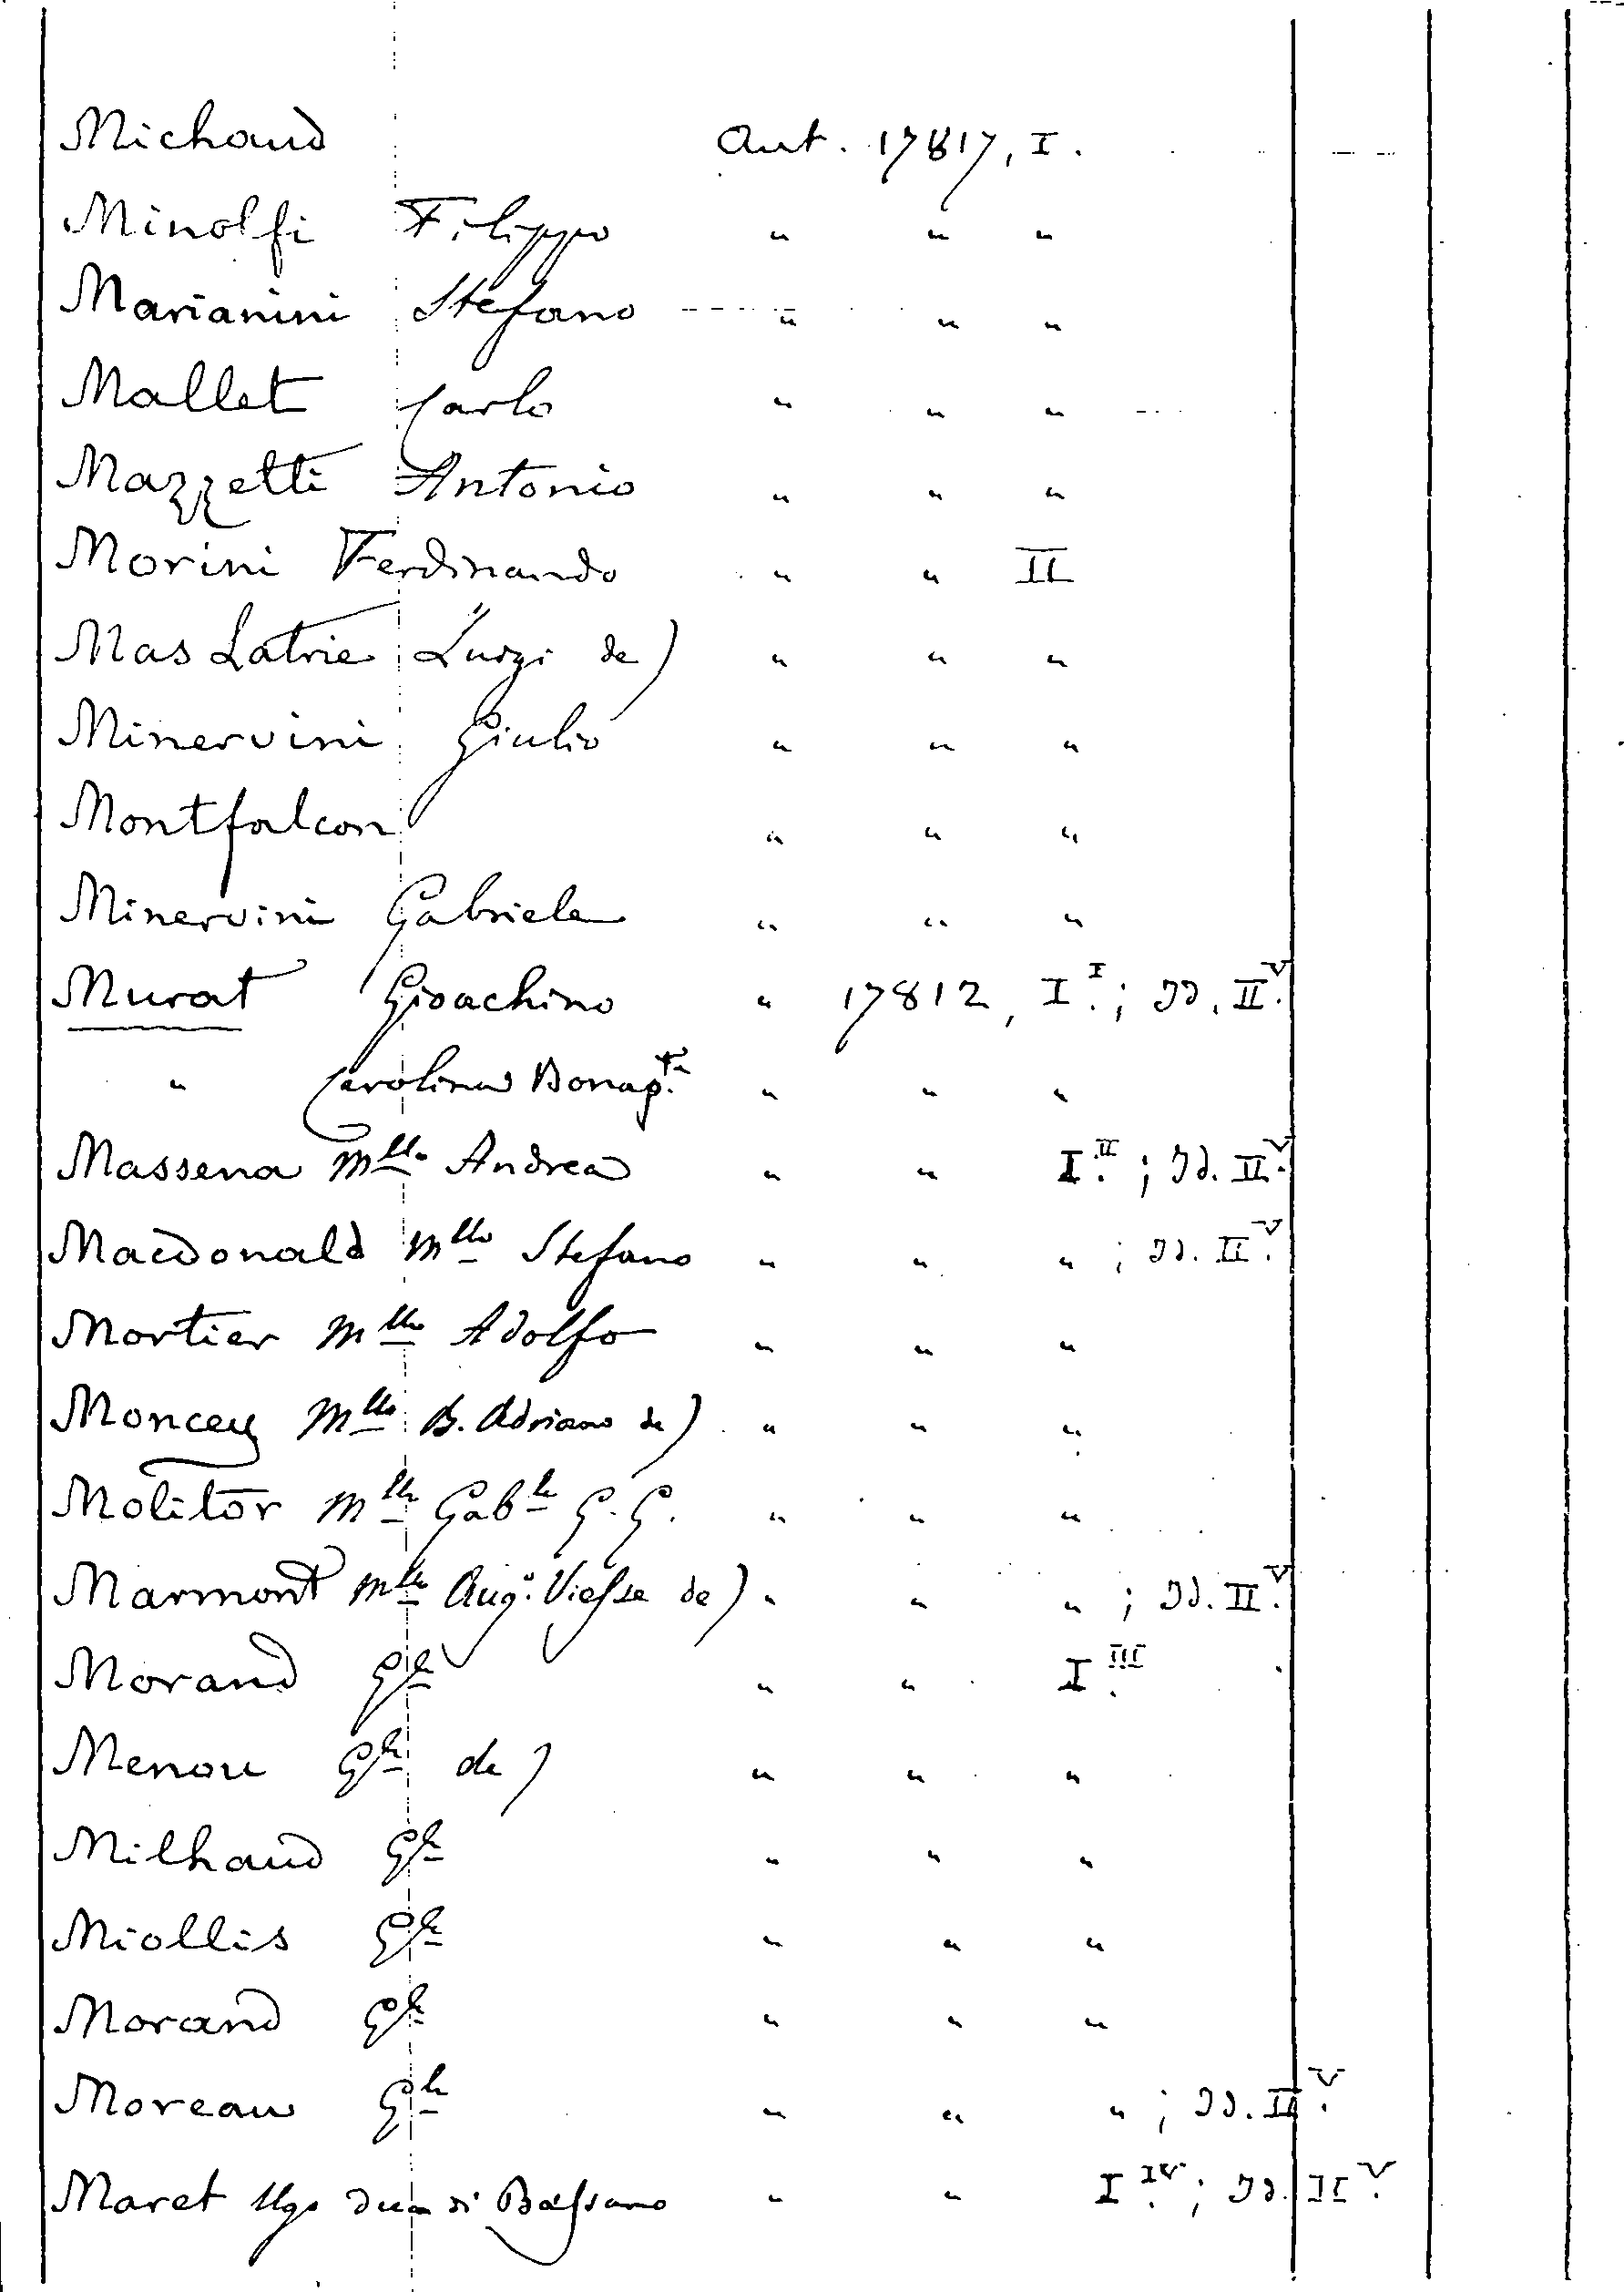 Michaud Aut. 17817, I.
Minolfi Filippo " " "
Marianini Stefano " " "
Mallet Carlo " " "
Mazzetti Antonio " " "
Morini Ferdinando " " II
Mas Latrie Luigi de) " " "
Minervini Giulio " " "
Montfalcon " " "
Minervini Gabriele " " "
Murat Gioachino " 17812, I.I; Id. II.V
" Carolina Bonap.te " " "
Massena Mllo Andrea " " I.II; Id. II.V
Macdonald Mllo Stefano " " "; Id. II.V
Mortier Mllo Adolfo " " "
Moncey Mllo B. Adriano de) " " "
Molitor Mllo Gable G. G. " " "
Marmont Mllo Aug.o Viesse de) " " "; Id. II.V
Morand Gle " " I.III
Menou Gle de) " " "
Milhaud Gle " " "
Miollis Gle " " "
Morand Gle " " "
Moreau Gle " " "; Id. II.V
Maret Ugo duca di Bassano " " I.IV; Id. II.V